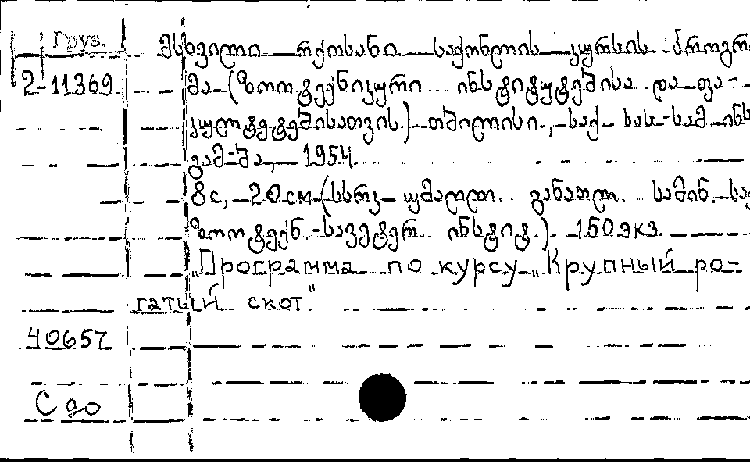 Груз.
მსხვილი რქოსანი საქონლის კურსის პროგრ
2-11369 მა (ზოოტექნიკური ინსტიტუტებისა და ფა-
კულტეტებისათვის) თბილისი, საქ. სას.-სამ. ინს
გამ-მა, 1954.
8 с, 20 см (სსრკ უმაღლ. განათლ. სამინ. სა
ზოოტექნ.-სავეტერ ინსტიტ.) 150 экз.
„Программа по курсу „Крупный ро-
гатый скот"
40657
С до